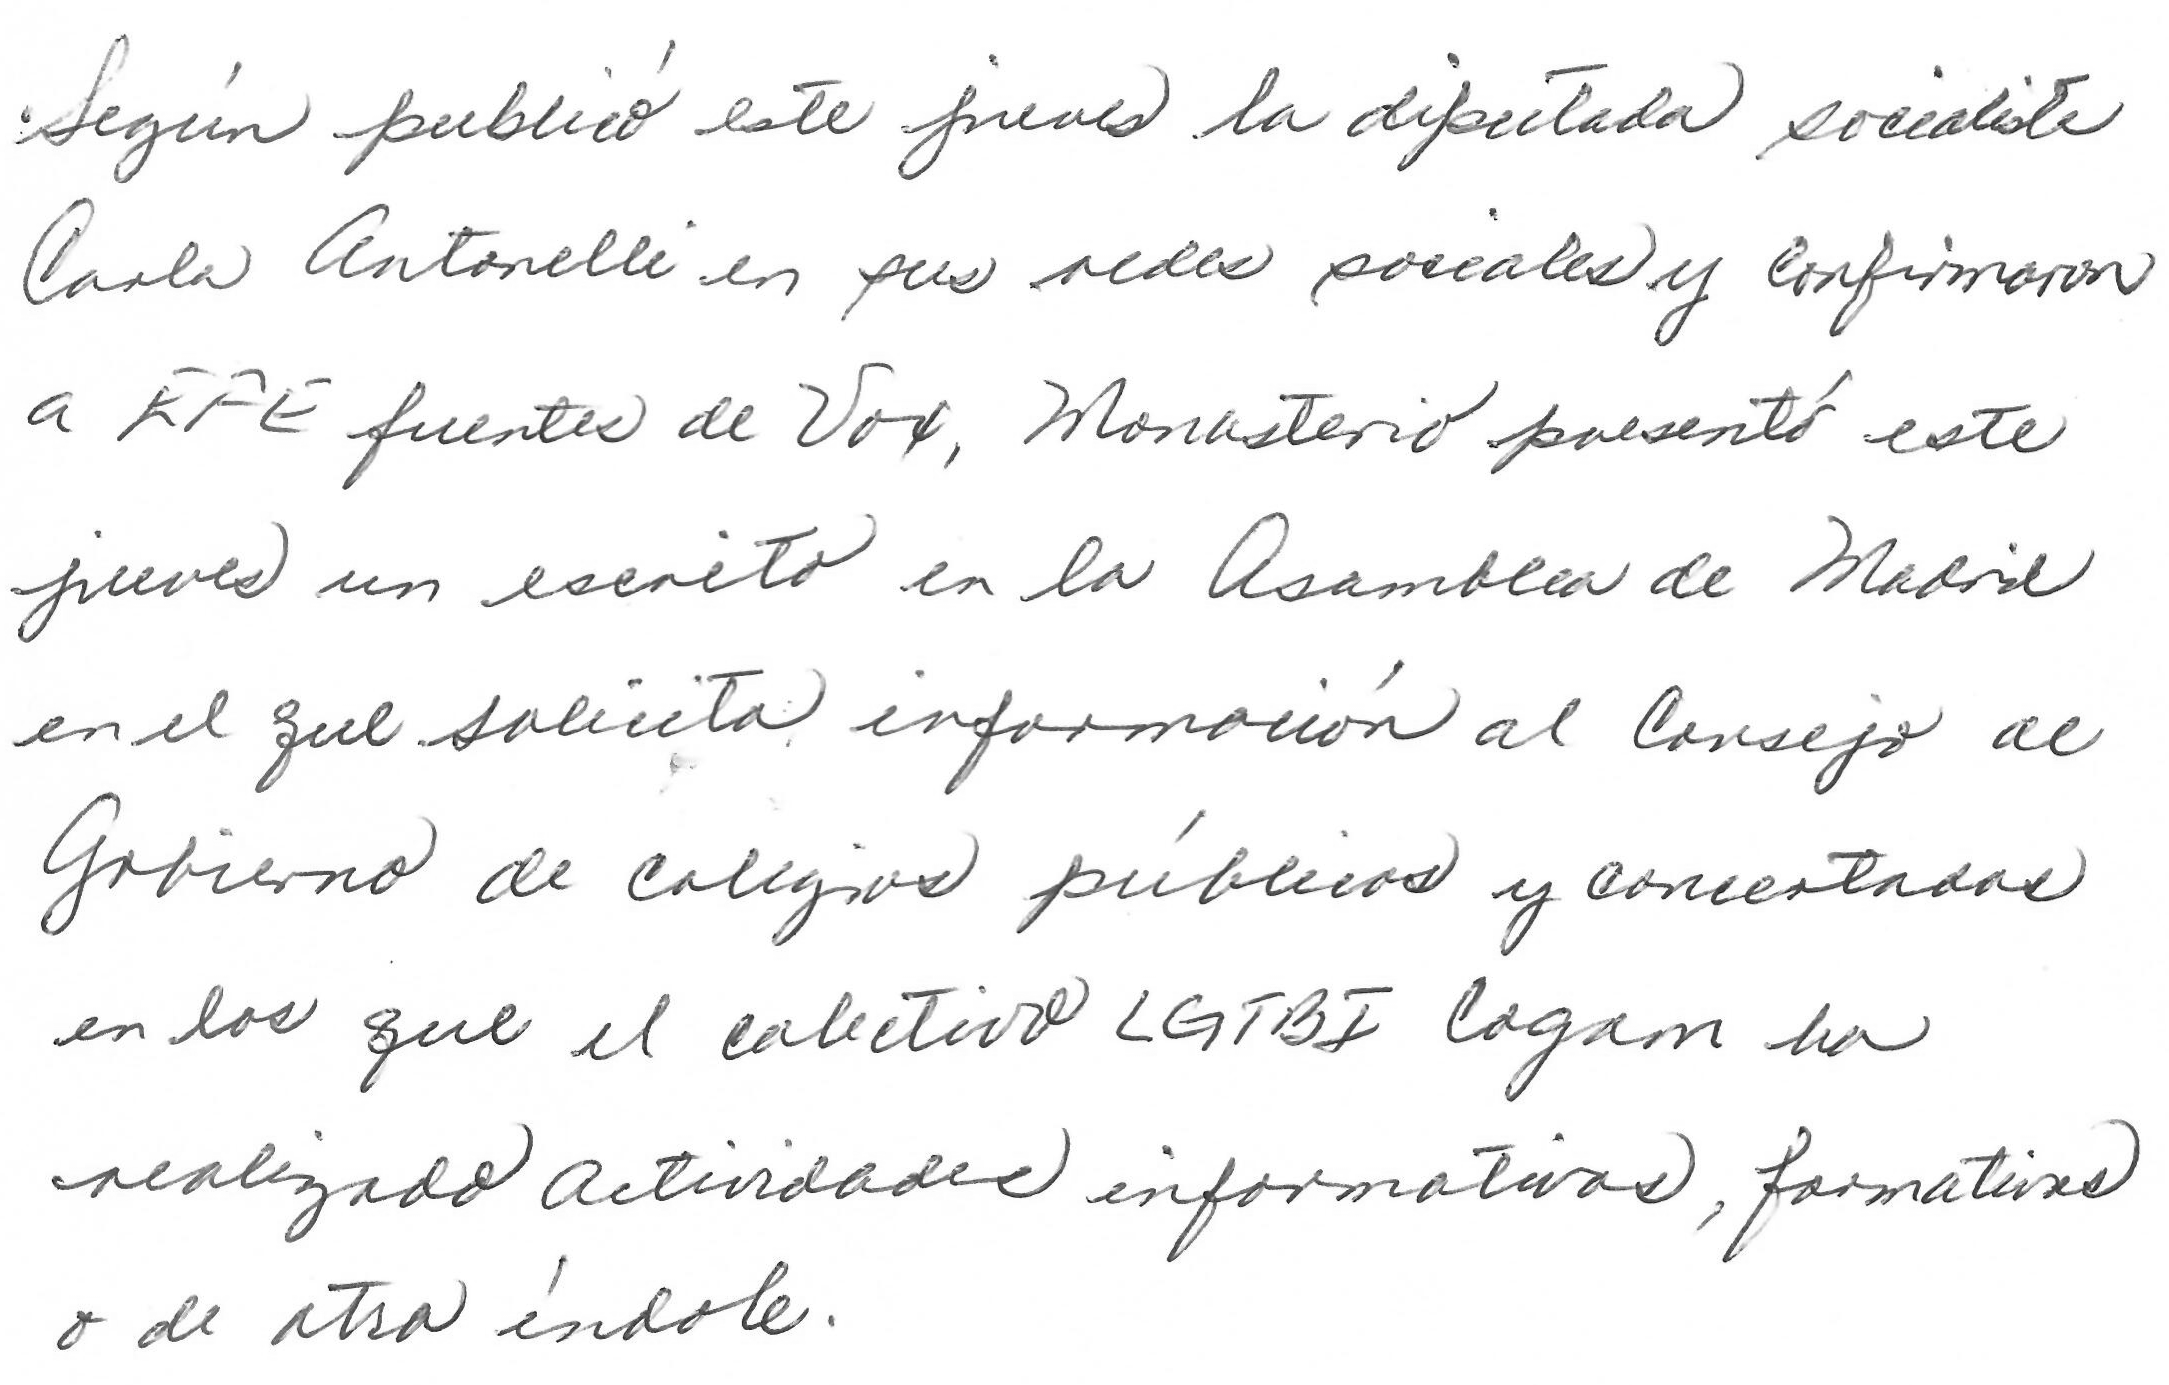 Según publicó este jueves la diputada socialista
Carla Antonelli en sus redes sociales y confirmaron
a EFE fuentes de Vox, Monasterio presentó este
jueves un escrito en la Asamblea de Madrid
en el que solicita información al Consejo de
Gobierno de colegios públicos y concertados
en los que el colectivo LGTBI Cogam ha
realizado actividades informativas, formativas
o de otra índole.